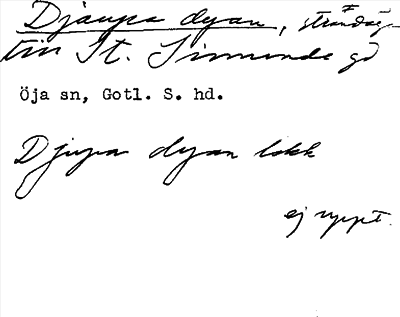 Djaupa dyan, strandäga
till St. Simunde gd
Öja sn, Gotl. S. hd.
Djupa dyan lokk
ej uppt.